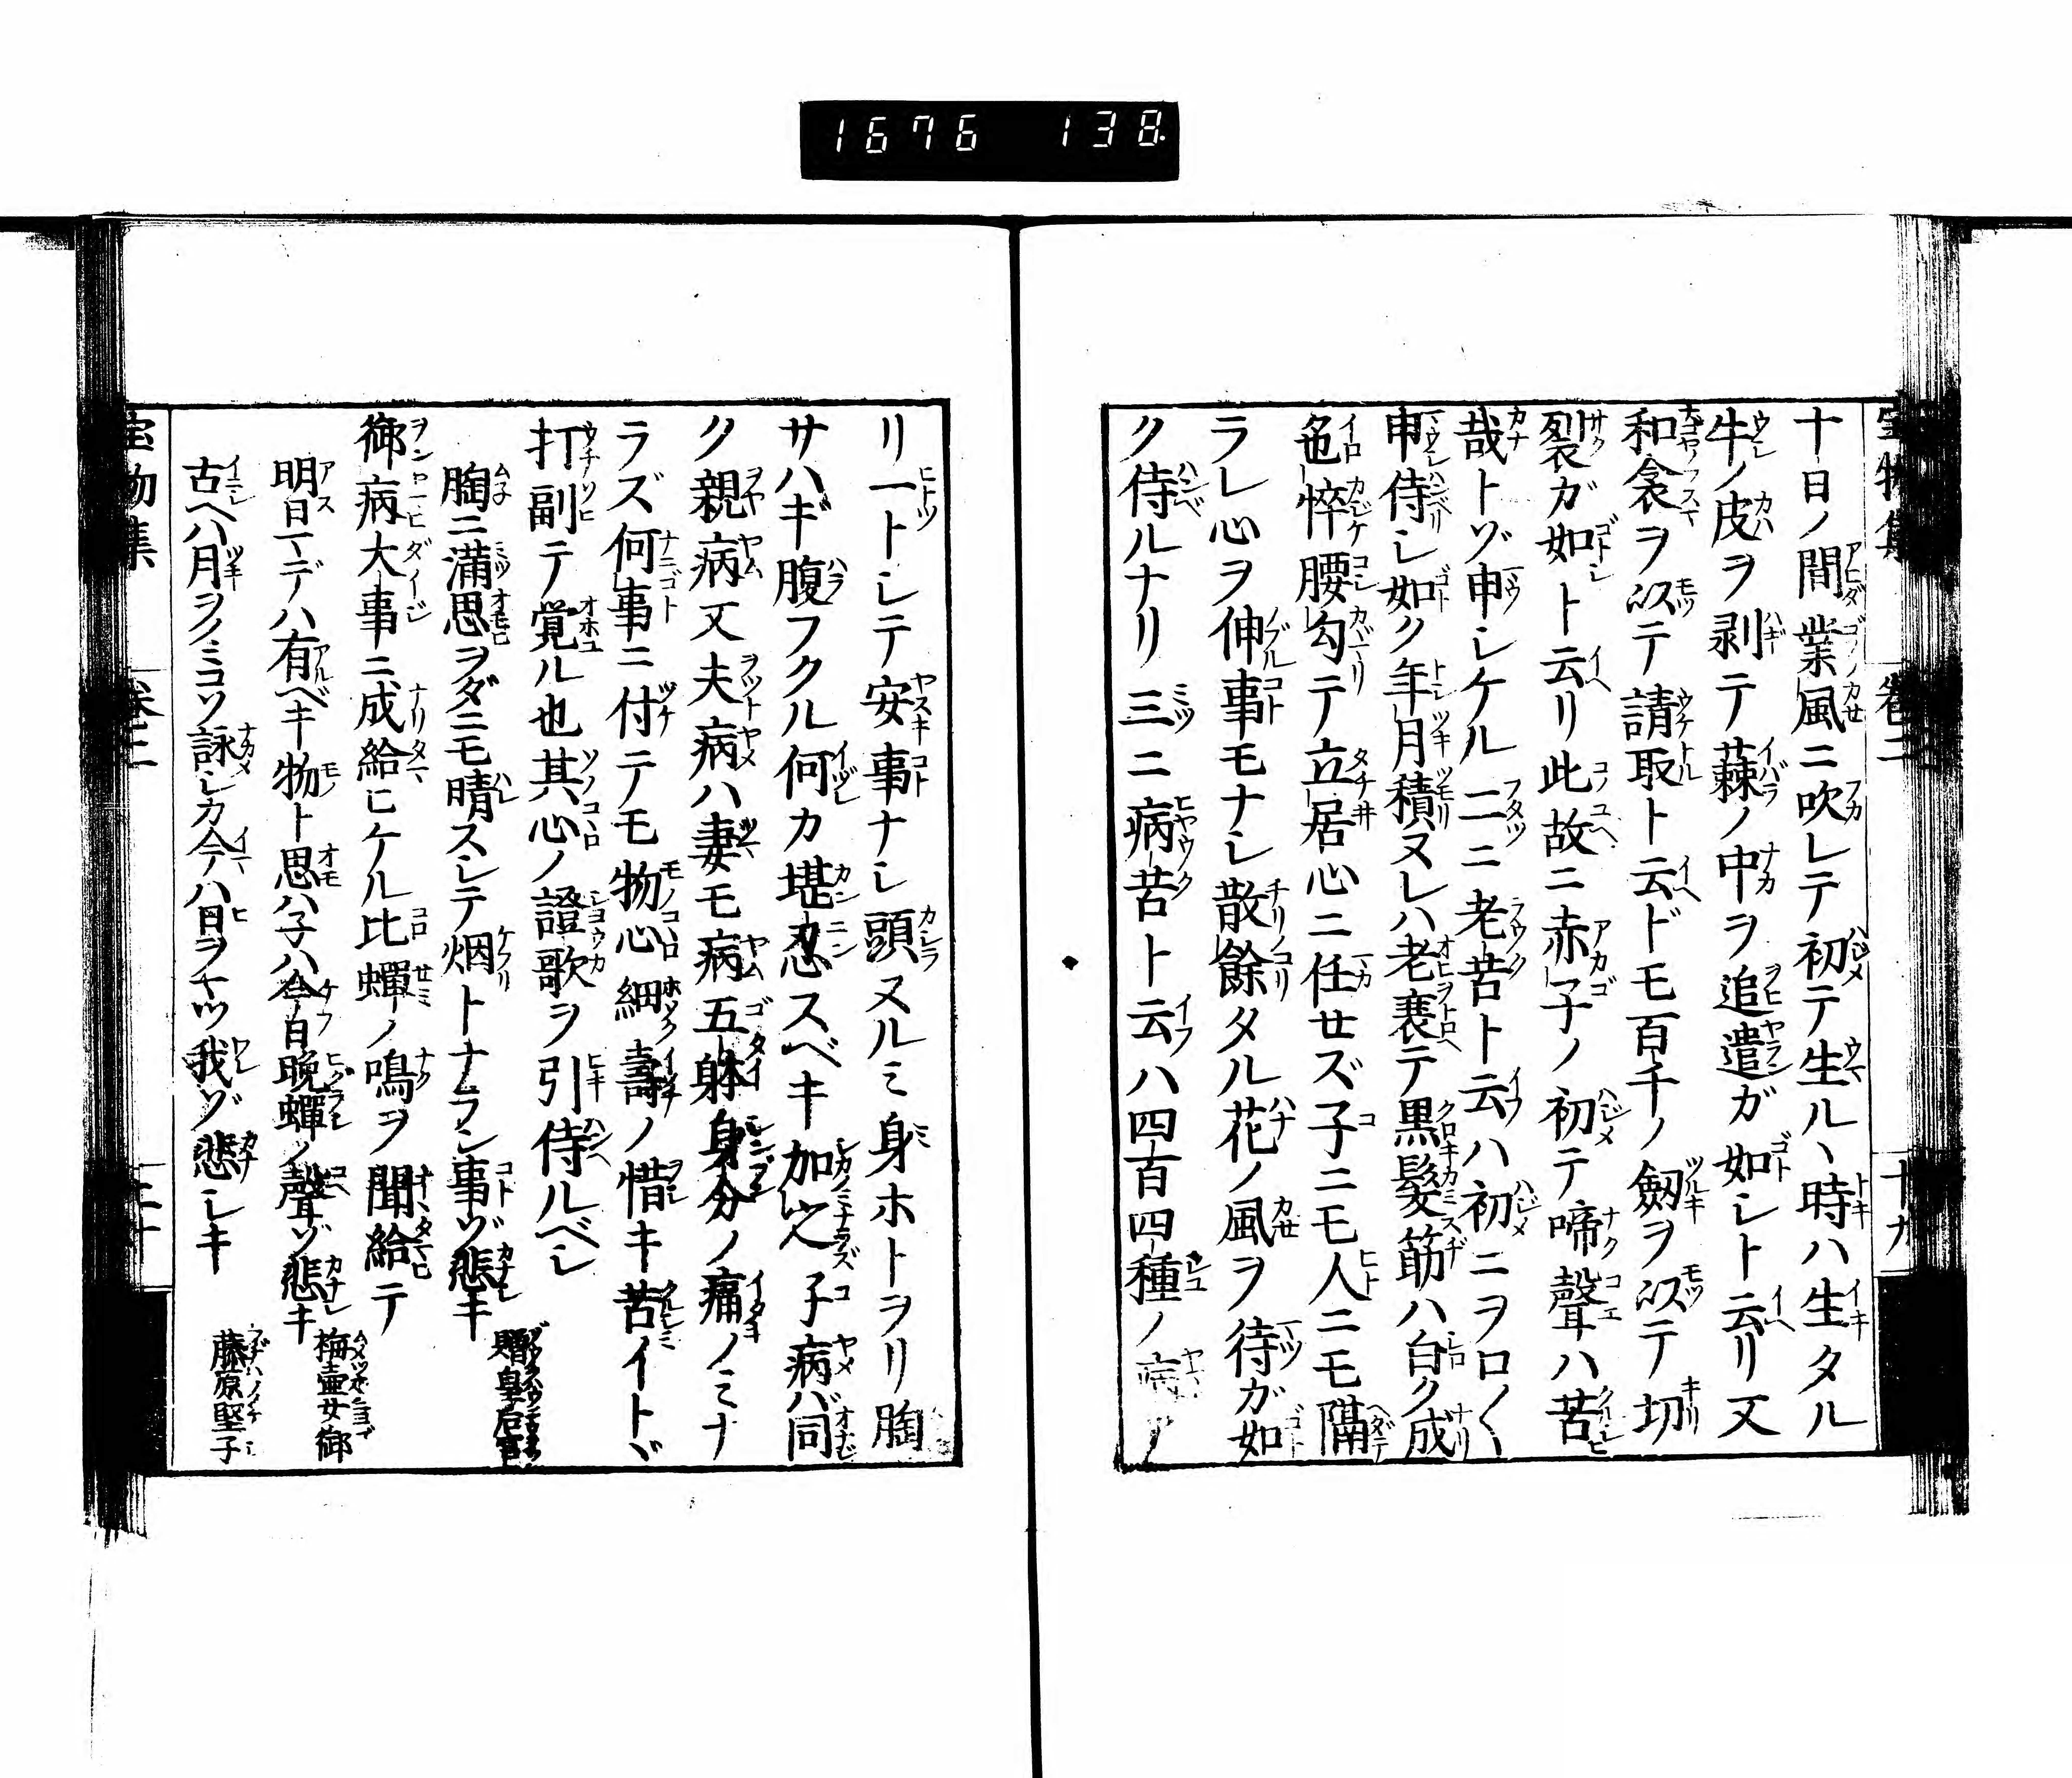 1676 138
十日ノ間業風ニ吹レテ初テ生ルヽ時ハ生タル
牛ノ皮ヲ剥テ蕀ノ中ヲ追遣ガ如シト云リ又
和衾ヲ以テ請取ト云ドモ百千ノ劔ヲ以テ切
裂ガ如ト云リ此故ニ赤子ノ初テ啼聲ハ苦
哉トゾ申シケル二ニ老苦ト云ハ初ニヲロ〱
申侍シ如ク年月積ヌレハ老衰テ黒髪筋ハ白ク成
色悴腰勾テ立居心ニ任セズ子ニモ人ニモ隔
ラレ心ヲ伸事モナシ散餘タル花ノ風ヲ待ガ如
ク侍ルナリ三ニ病苦ト云ハ四百四種ノ病ア
リ一トシテ安事ナシ頭ヌルミ身ホトヲリ胸
サハギ腹フクル何カ堪忍スベキ加之子病バ同
ク親病又夫病ハ妻モ病五躰身分ノ痛ノミナ
ラズ何事ニ付テモ物心細壽ノ惜キ苦イトヾ
打副テ覚ル也其心ノ證歌ヲ引侍ルベシ
胸ニ満思ヲダニモ晴スシテ烟トナラン事ゾ悲キ 贈皇后宮
御病大事ニ成給ヒケル比蟬ノ鳴ヲ聞給テ
明日マデハ有ベキ物ト思ハ子ハ今日晩蟬ノ聲ゾ悲キ 梅壷女御
古ヘハ月ヲノミコソ詠シカ今ハ日ヲマツ我ゾ悲シキ 藤原堅子
宝物集 巻二 十九
宝物集 巻二 二十